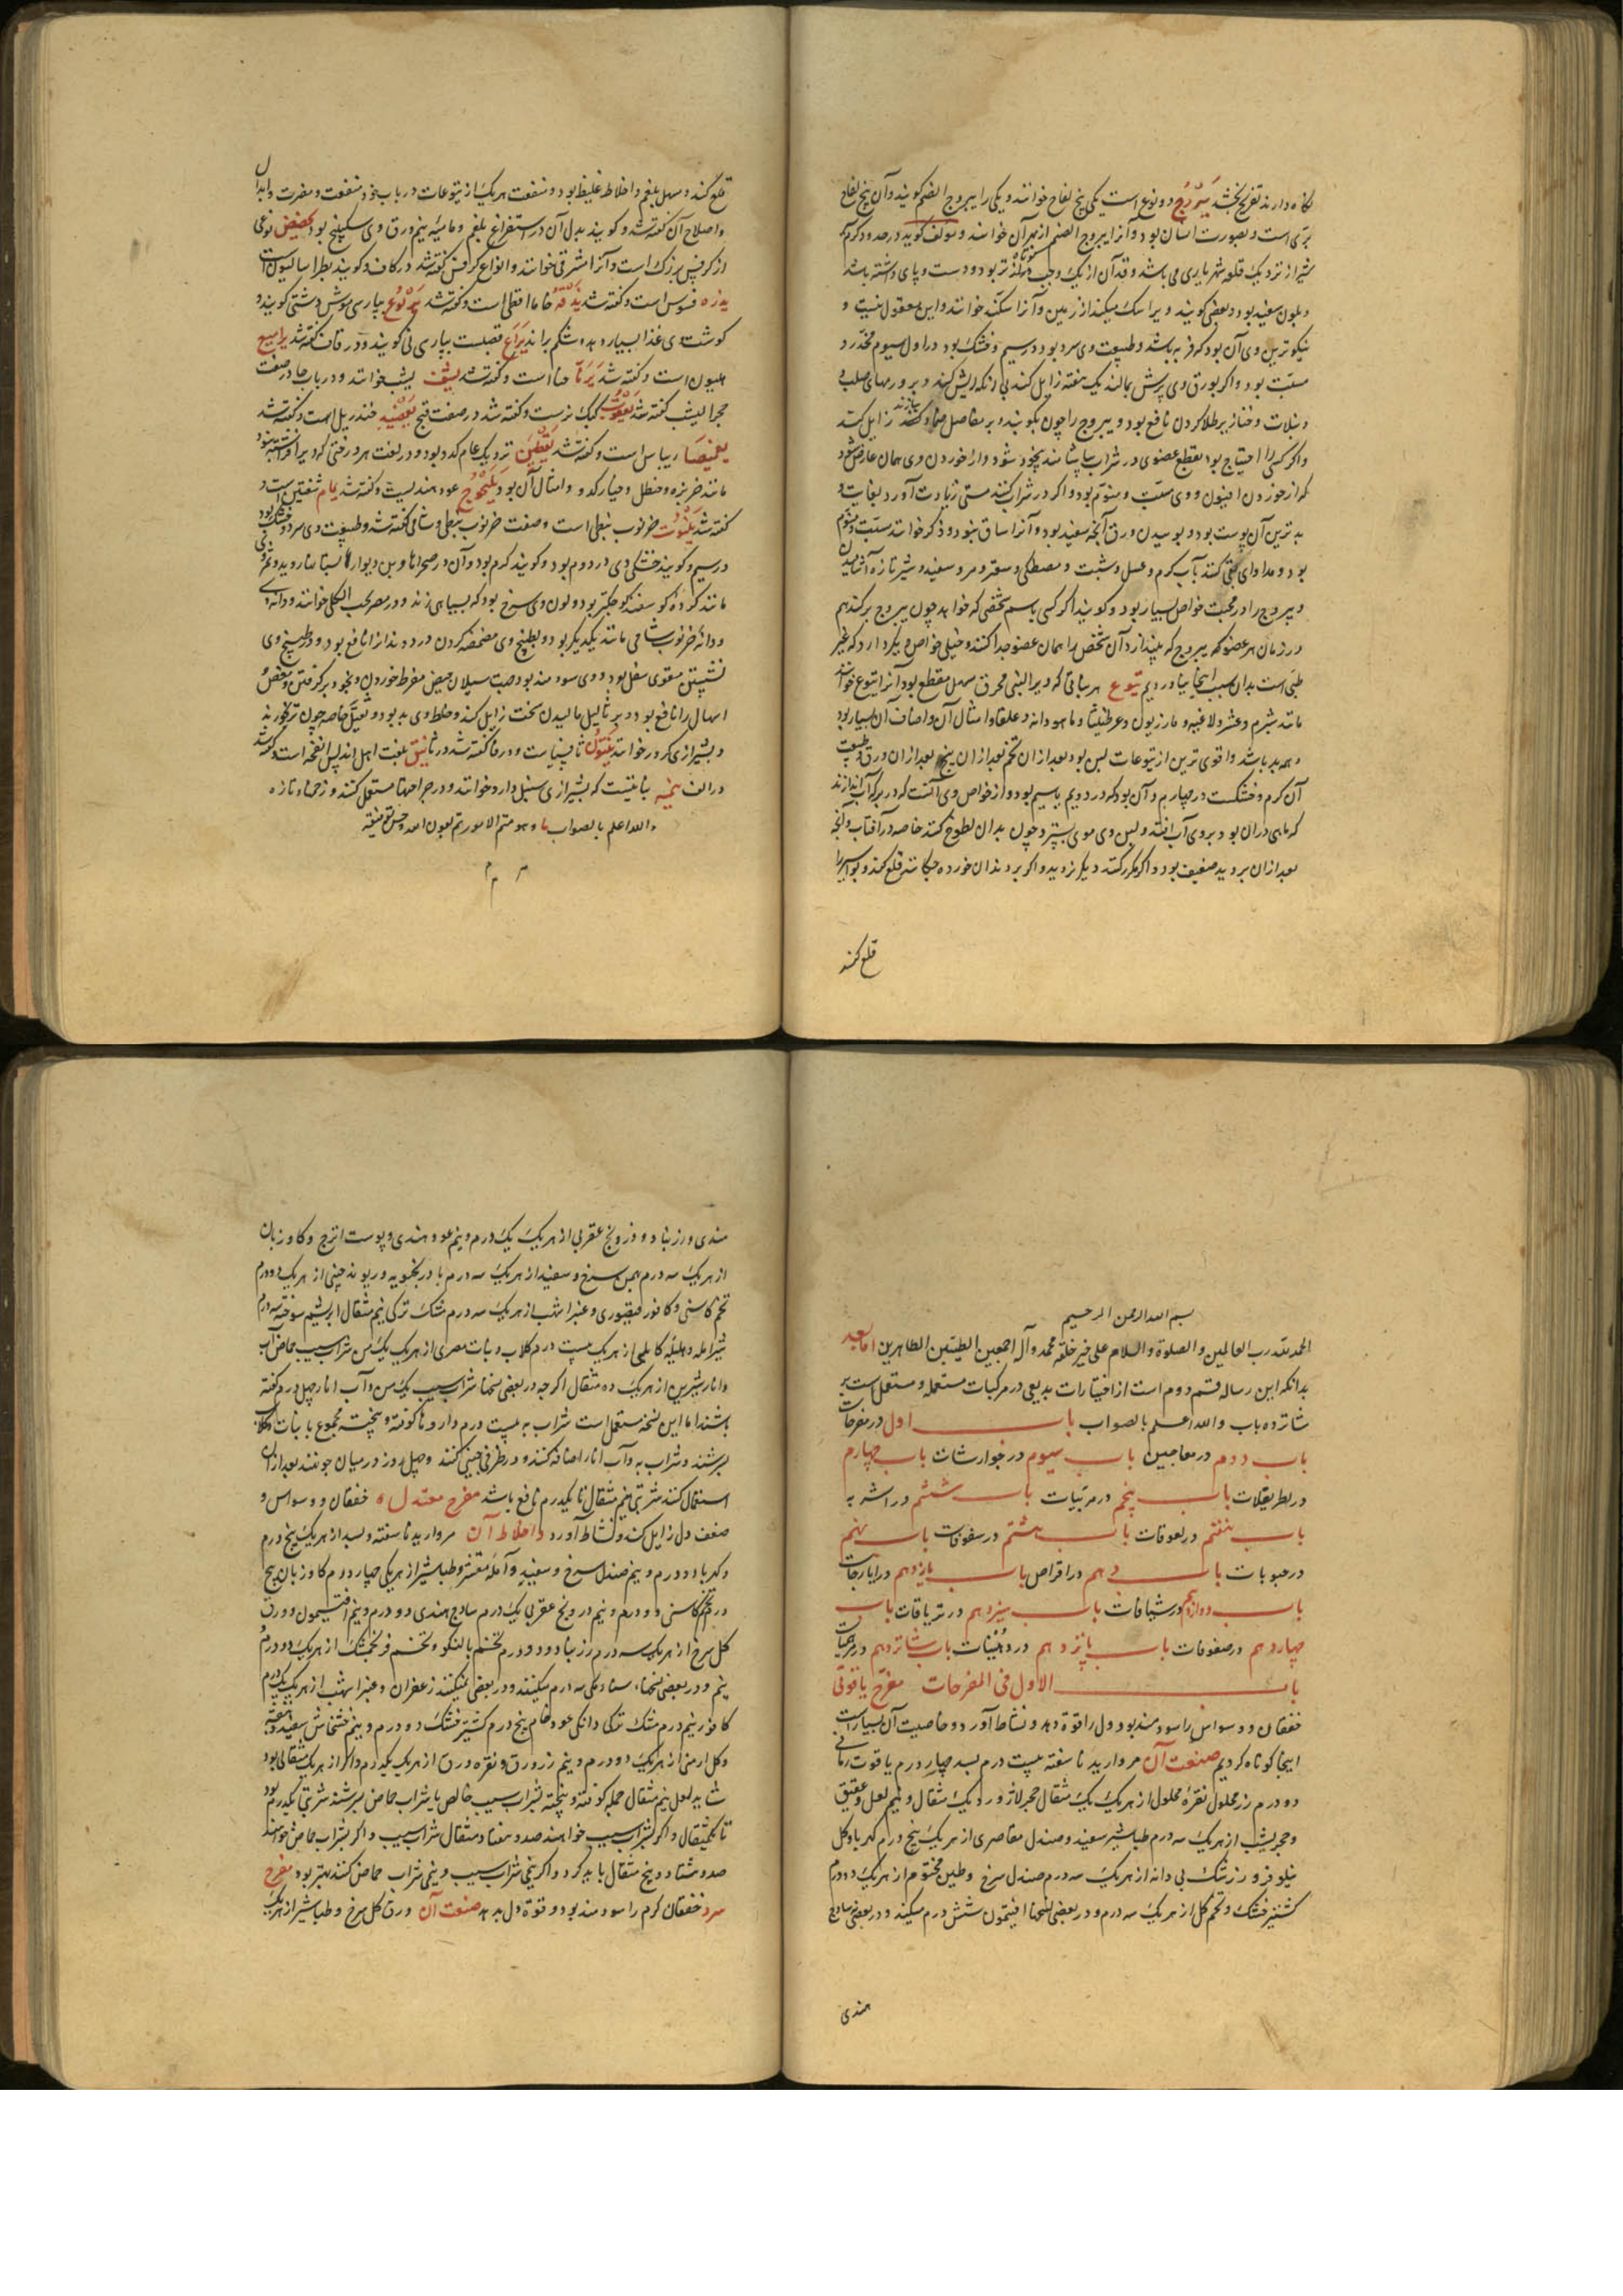 تازه دارند تفریح بخشد یبروج دو نوع است یکی بیخ لفاح خوانند و یکی را یبروج الصنم گویند و آن بیخ لفاح
بری است و بصورت انسان بود و آنرا یبروج الصنم از بهر آن خوانند و مولف گوید در حدود گرم
شیراز نزدیک قلعه شهریاری می باشد و قد آن از یک وجب کوتاه تر بود و دست و پای داشته باشد
و بلون سفید بود و بعضی گویند ویرا سگ میکند از زمین و آنرا سگ کند خوانند و این معقول نیست و
نیکوترین وی آن بود که فربه باشد و طبیعت وی سرد بود در سیم و خشک بود در اول سیوم مخدر و
مسبت بود و اگر بورق وی برش بمالند یک هفته زایل کند بی آنکه ریش کند و بر ورمهای صلب و
دبیلات و خنازیر طلا کردن نافع بود و یبروج را چون بکوبند و بر مفاصل ضماد کنند زایل کند
و اگر کسی را احتیاج بود بقطع عضوی در شراب بیاشامند بیخود شود و از خوردن وی همان عارض شود
که از خوردن افیون و وی مسبت و منوم بود و اگر در شراب کنند مستی زیادت آورد بغایت و
بدترین آن پوست بود و بوسیدن ورق آنچه سفید بود و آنرا ساق نبود و ذکر خوانند مسبت و منوم
بود و مداوای بقی کنند بآب گرم و عسل و شبت و مصطکی و سعتر و مر و سفید و شیر تازه آشامیدن
و یبروج را در محبت خواص بسیار بود و گویند اگر کسی باسم شخصی که خواهد چون یبروج برکندیم
در زمان هر عضو که یبروج که بیندازد آن شخص را همان عضو جدا کنند و خیلی خواص دیگر دارد که غیر
طبی است بدان سبب اینجا نیاوردیم یتوع هر نباتی که ویرا لبنی محرق مسهل مقطع بود آنرا یتوع خوانند
مانند شبرم و عشر و لاغیه و مازریون و عرطنیثا و ماهودانه و علقا و امثال آن و اصناف آن بسیار بود
و همه بد باشد و اقوی ترین از یتوعات لبن بود بعد از آن تخم بعد از آن بیخ بعد از آن ورق و طبیعت
آن گرم و خشکست در چهارم و آن بود که در دویم یا سیم بود و از خواص وی آنست که در برکه آب اندازند
که ماهی در آن بود بروی آب افتد و لبن وی موی بستر و چون بدان لطوخ کنند خاصه در آفتاب و آنچه
بعد از آن بروید ضعیف بود و اگر مکرر کنند دیگر نروید و اگر بر دندان خورده چکانند قلع کند و بواسیر را
قلع کند
قلع کند و مسهل بلغم و اخلاط غلیظ بود و منفعت هر یک از یتوعات در باب خود منفعت و مضرت و ابدال
و اصلاح آن گفته شد و گویند بدل آن در استفراغ بلغم و ماییه نیم ورق وی سکبینج بود نوعی
از کرفس بزرگ است و آنرا مشرقی خوانند و انواع کرفس گفته شد در کاف و گویند بطراسالیون است
یذره فسوس است و گفته شد یذقه خاماقطی است و گفته شد یربوع بپارسی موش دشتی گویند و
گوشت وی غذا بسیار دهد و شکم براند یراع قصبست بپارسی نی گویند و در قاف گفته شد یرامیع
هلیون است و گفته شد یرنا حنا است و گفته شد یشف یشب خوانند و در باب حا در صفت
حجر الیشب گفته شد یعقوب کبک نرست و گفته شد در صفت قبج یعضید خندریلی است و گفته شد
یعمیصا ریباس است و گفته شد یقطین نزدیک عام کدو بود و در لغت هر درختی که ویرا ساق نبود
مانند خربزه و حنظل و خیار کدو و امثال آن بود یلنجوج عود هندیست و گفته شد یمام شفنین است و
گفته شد ینبوت خرنوب نبطی است و صفت خرنوب نبطی و شامی گفته شد و طبیعت وی سرد و خشک بود
در سیم و گویند خشکی وی در دوم بود و گویند گرم بود و آن در صحراها و بن دیوار بستانها روید و ثمر وی
مانند گرده گوسفند کوچکتر بود و لون وی سرخ بود که بسیاهی زند و در مصر بحب الکلی خوانند و دانه وی
و دانه خرنوب شامی مانند یکدیگر بود و بطبیخ وی مضمضه کردن درد دندانرا نافع بود و در طبیخ وی
نشستن مقوی سفل بود و وی سودمند بود جهت سیلان حیض مفرط خوردن و بخود برگرفتن و مغص
اسهال را نافع بود و بر ثالیل مالیدن سخت زایل کند و خلط وی بد بود و ثقیل خاصه چون تر خورند
و بشیرازی کرور خوانند ینتون ثافسیاست و در ثا گفته شد ینق بلغت اهل اندلس انفحه است و گفته شد
در الف ینمه نباتیست که بشیرازی سنبل دارو خوانند و در جراحتها مستعمل کنند و زخمها تازه
والله اعلم بالصواب و هو متمم الامور تم بعون الله و حسن توفیقه
م م م
بسم الله الرحمن الرحیم
الحمد لله رب العالمین و الصلوة و السلام علی خیر خلقه محمد و آله اجمعین الطیبین الطاهرین اما بعد
بدانکه این رساله قسم دوم است از اختیارات بدیعی در مرکبات مستعمله و مستعمل است بر
شانزده باب والله اعلم بالصواب باب اول در مفرحات
باب دوم در معاجین باب سیوم در جوارشات باب چهارم
در اطریفلات باب پنجم در مربیات باب ششم در اشربه
باب هفتم در لعوقات باب هشتم در سفوفات باب نهم
در حبوبات باب دهم در اقراص باب یازدهم در ایارجات
باب دوازدهم در شیافات باب سیزدهم در تریاقات باب
چهاردهم در ضمادات باب پانزدهم در دهنیات باب شانزدهم در مرهمیات
باب الاول فی المفرحات مفرح یاقوتی
خفقان و وسواس را سودمند بود و دل را قوة دهد و نشاط آورد و خاصیت آن بسیار است
اینجا کوتاه کردیم صنعت آن مروارید ناسفته بیست درم بسد چهار درم یاقوت رمانی
دو درم زر محلول نقره محلول از هر یک یک مثقال حجر لاژورد یک مثقال و نیم لعل و عقیق
و حجر یشب از هر یک سه درم طباشیر سفید و صندل مقاصری از هر یک پنج درم کهربا و گل
نیلوفر و زرشک بی دانه از هر یک سه درم صندل سرخ و طین مختوم از هر یک دو درم
کشنیز خشک و تخم گل از هر یک سه درم و در بعضی نسخها افتیمون شش درم میکنند و در بعضی ساذج
هندی
هندی و زرنباد و درونج عقربی از هر یک یک درم و نیم عود هندی و پوست اترج و گاوزبان
از هر یک سه درم بهمن سرخ و سفید از هر یک سه درم بادرنجبویه و ریوند چینی از هر یک دو درم
تخم کاسنی و کافور قیصوری و عنبر اشهب از هر یک سه درم مشک ترکی نیم مثقال ابریشم سوخته سه درم
شیر آمله و هلیله کابلی از هر یک بیست درم گلاب و نبات مصری از هر یک یک من شراب سیب حماض آب
و انار شیرین از هر یک ده مثقال اگرچه در بعضی نسخها شراب سیب یک من و آب انار چهل درم گفته
باشند اما این نسخه مستعمل است شراب به بیست درم داروها کوفته و بیخته مجموع با نبات و گلاب
بسرشند و شراب به و آب انار اضافه کنند و در ظرفی چینی کنند و چهل روز در میان جو نهند بعد از آن
استعمال کنند شربتی نیم مثقال تا یکدرم نافع باشد مفرح معتدل خفقان و وسواس و
ضعف دل زایل کند و نشاط آورد و اخلاط آن مروارید ناسفته و بسد از هر یک پنج درم
و کهربا دو درم و نیم صندل سرخ و سفید و آمله مقشر و طباشیر از هر یکی چهار درم گاوزبان پنج
درم تخم کاسنی دو درم و نیم درونج عقربی یک درم ساذج هندی دو درم و نیم افتیمون و ورق
گل سرخ از هر یک سه درم زرنباد دو درم تخم بالنگو و تخم فرنجمشک از هر یک دو درم
نیم و در بعضی نسخها سناء مکی سه درم میکنند و در بعضی نمیکنند زعفران و عنبر اشهب از هر یک یکدرم
کافور نیم درم مشک ترکی دانگی عود خام پنج درم کشنیز خشک دو درم و نیم خشخاش سفید
و گل ارمنی از هر یک دو درم و نیم زر ورق و نقره ورق از هر یک یکدرم و اگر از هر یک مثقالی بود
شاید لعل نیم مثقال جمله کوفته و بیخته بشراب سیب خالص یا شراب حماض بسرشند شربتی یکدرم بود
تا یکمثقال و اگر بشراب سیب خواهند صد و هفتاد مثقال شراب سیب و اگر بشراب حماض خواهند
صد و هشتاد و پنج مثقال باید کرد و اگر نیمی شراب سیب و نیمی شراب حماض کنند بهتر بود مفرح
سرد خفقان گرم را سودمند بود و قوة دل بدهد صنعت آن ورق گل سرخ و طباشیر از هر یک